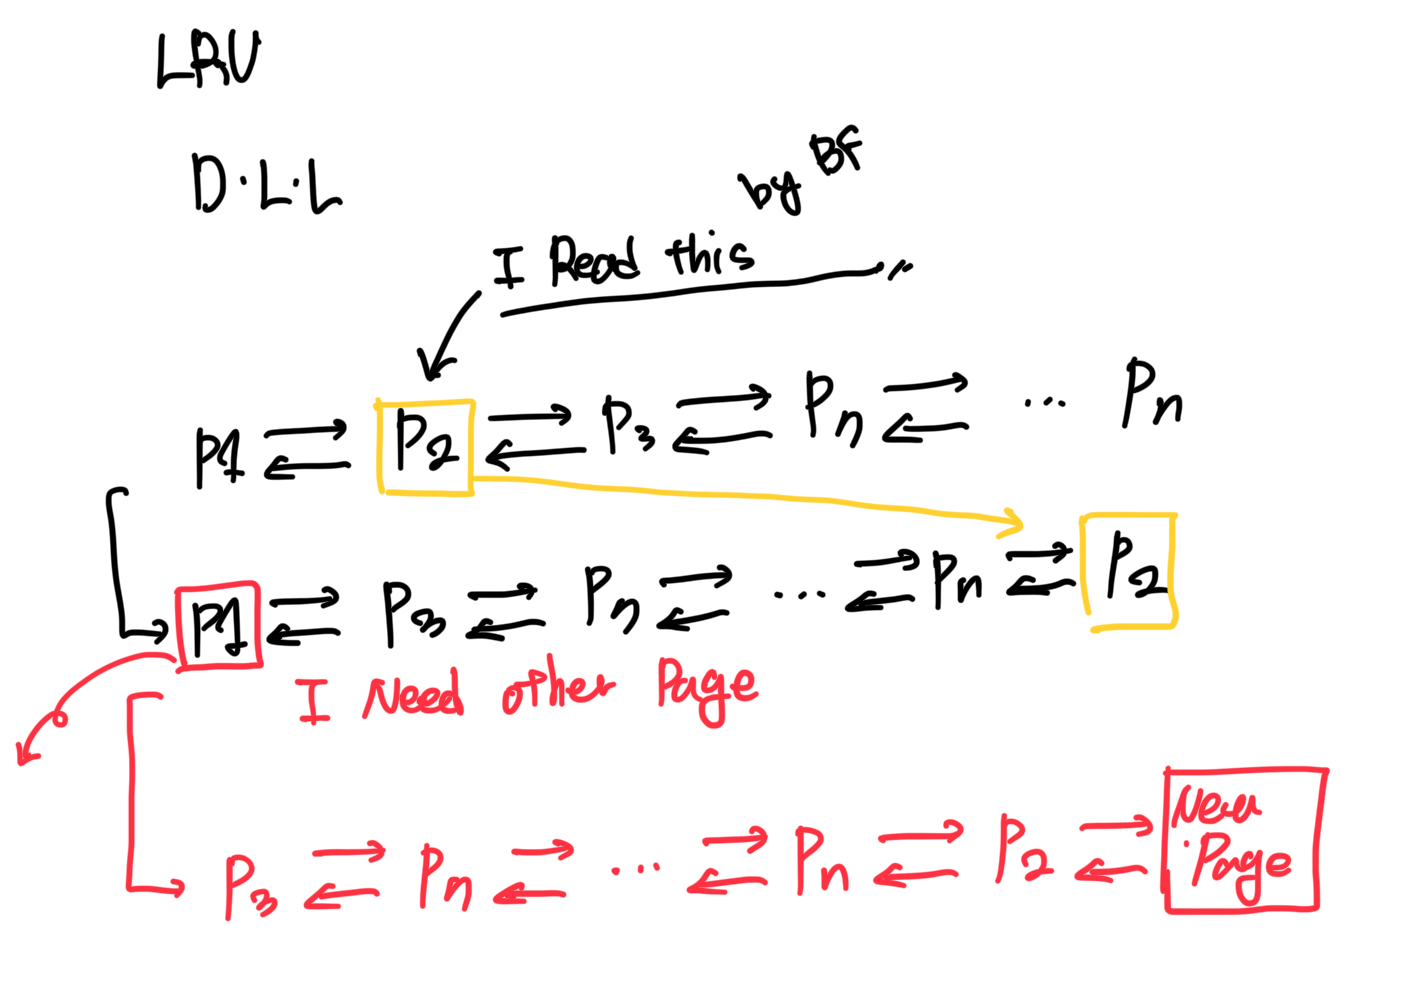 LRU
D.L.L
by BF
I Read this
P1 ⇄ P2 ⇄ P3 ⇄ Pn ⇄ ... Pn
P1 ⇄ P3 ⇄ Pn ⇄ ... ⇄ Pn ⇄ P2
I Need other Page
P3 ⇄ Pn ⇄ ... ⇄ Pn ⇄ P2 ⇄ New Page